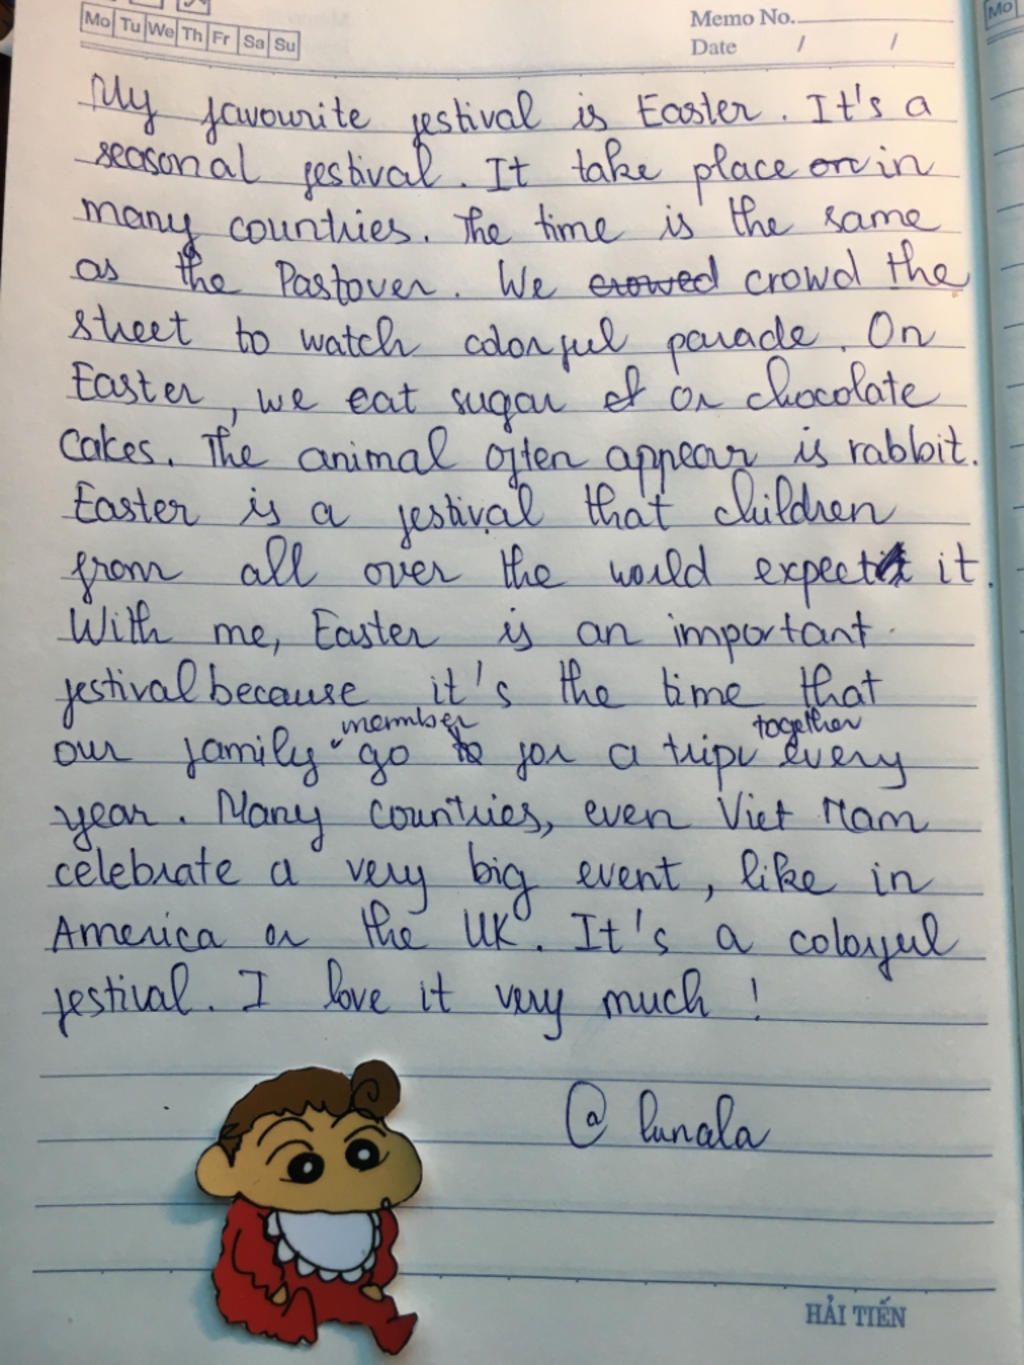 Mo Tu We Th Fr Sa Su
Memo No.
Date / /
Mo
My favourite festival is Easter. It's a
seasonal festival. It take place on in
many countries. The time is the same
as the Pastover. We crowed crowd the
street to watch colorful parade. On
Easter, we eat sugar or chocolate
cakes. The animal often appear is rabbit.
Easter is a festival that children
from all over the world expect it.
With me, Easter is an important
festival because it's the time that
member together
our family go to for a trip every
year. Many countries, even Viet Nam
celebrate a very big event, like in
America or the UK. It's a colorful
festival. I love it very much !
@ lunala
HẢI TIẾN